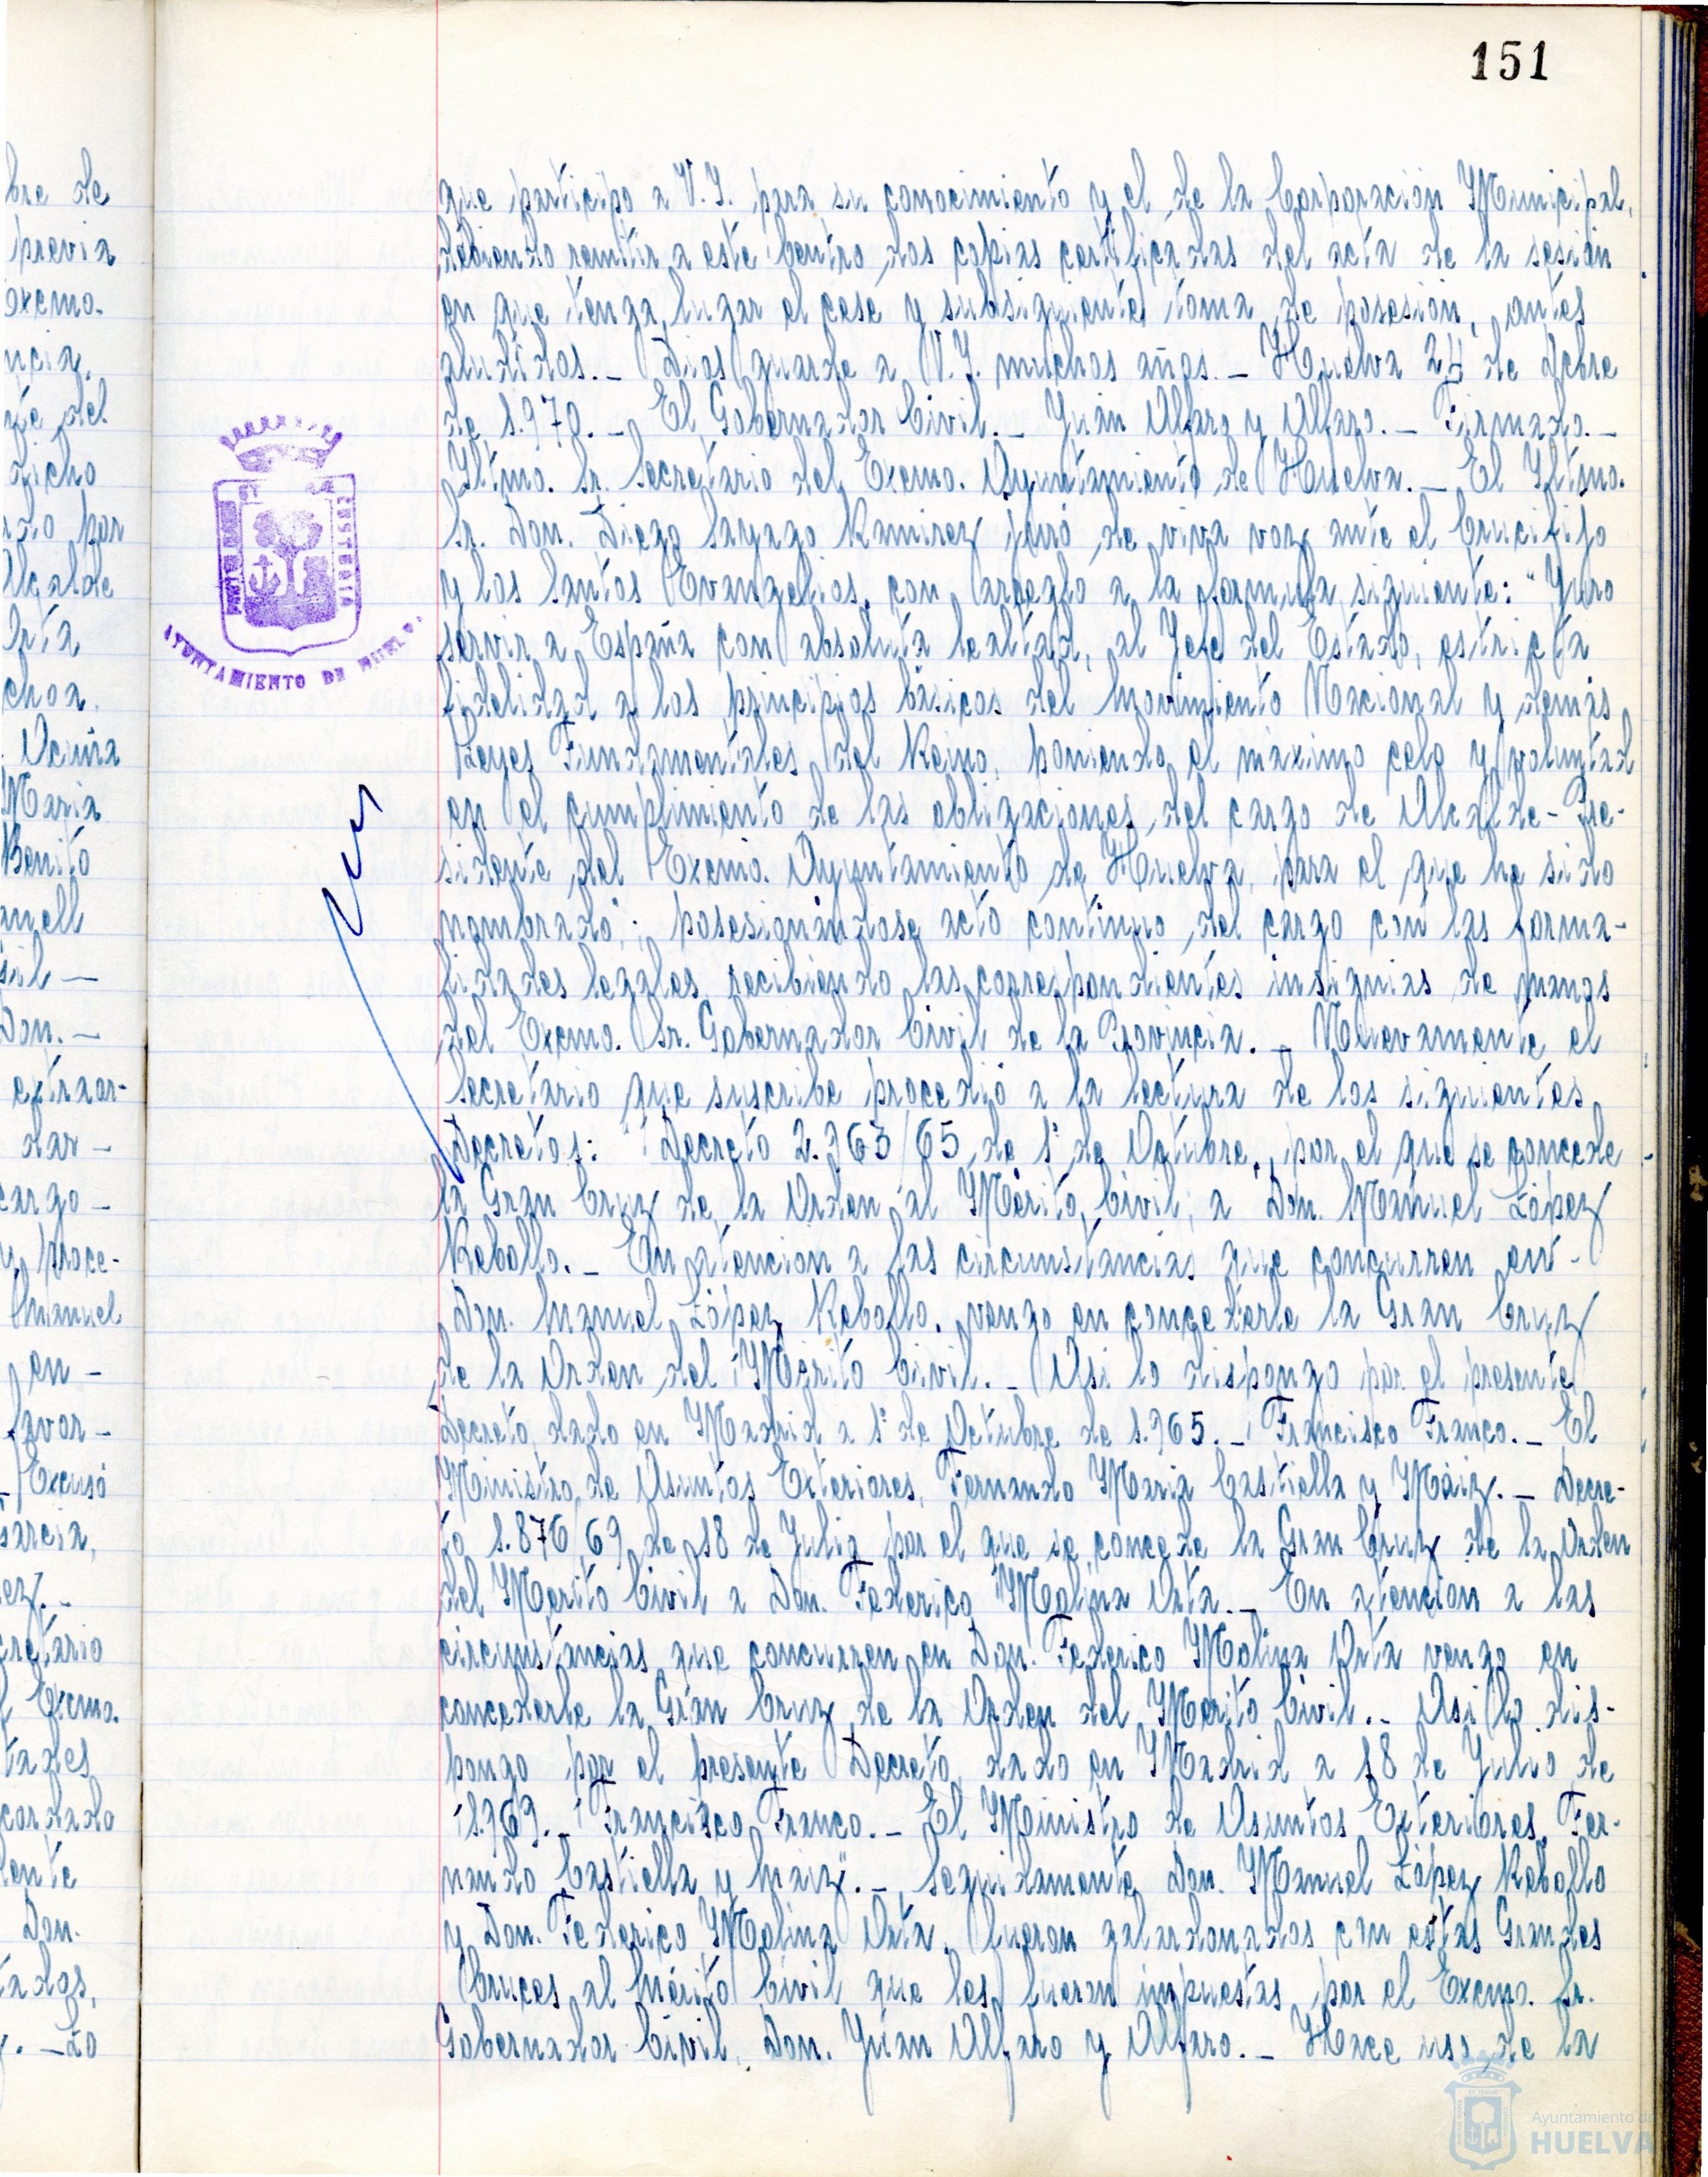 151
que participo a V.I. para su conocimiento y el de la Corporación Municipal,
debiendo remitir a este Centro dos copias certificadas del acta de la sesión
en que tenga lugar el cese y subsiguiente toma de posesión, antes
aludidos.- Dios guarde a V.I. muchos años.- Huelva 24 de Dcbre
de 1.970.- El Gobernador Civil.- Juan Alfaro y Alfaro.- Firmado.-
Iltmo. Sr. Secretario del Excmo. Ayuntamiento de Huelva.- El Iltmo.
Sr. Don. Diego Sayago Ramirez juró de viva voz ante el Crucifijo
y los Santos Evangelios, con arreglo a la formula siguiente: "Juro
servir a España con absoluta lealtad, al Jefe del Estado, estricta
fidelidad a los principios básicos del Movimiento Nacional y demás
Leyes Fundamentales del Reino, poniendo el máximo celo y voluntad
en el cumplimiento de las obligaciones del cargo de Alcalde-Pre-
sidente del Excmo. Ayuntamiento de Huelva, para el que he sido
nombrado"; posesionándose acto continuo del cargo con las forma-
lidades legales, recibiendo las correspondientes insignias de manos
del Excmo. Sr. Gobernador Civil de la Provincia.- Nuevamente el
Secretario que suscribe procedió a la lectura de los siguientes
Decretos: "Decreto 2.963/65 de 1º de Octubre, por el que se concede
la Gran Cruz de la Orden al Mérito Civil, a Don. Manuel López
Rebollo.- En atencion a las circunstancias que concurren en-
Don. Manuel López Rebollo, vengo en concederle la Gran Cruz
de la Orden del Mérito Civil.- Asi lo dispongo por el presente
Decreto, dado en Madrid a 1º de Octubre de 1.965.- Francisco Franco.- El
Ministro de Asuntos Exteriores, Fernando Maria Castiella y Máiz.- Decre-
to 1.876/69 de 18 de Julio por el que se concede la Gran Cruz de la Orden
del Merito Civil a Don. Federico Molina Orta.- En atencion a las
circunstancias que concurren en Don. Federico Molina Orta vengo en
concederle la Gran Cruz de la Orden del Merito Civil.- Asi lo dis-
pongo por el presente Decreto, dado en Madrid a 18 de Julio de
1.969.- Francisco Franco.- El Ministro de Asuntos Exteriores, Fer-
nando Castiella y Maiz".- Seguidamente Don. Manuel López Rebollo
y Don. Federico Molina Orta, fueron galardonados con estas Grandes
Cruces al Mérito Civil que les fueron impuestas por el Excmo. Sr.
Gobernador Civil, Don. Juan Alfaro y Alfaro.- Hace uso de la
AYUNTAMIENTO DE HUELVA
bre de
previa
Excmo.
ncia.
te del
dicho
do por
Alcalde
Orta
choa.
Acuña
Maria
Benito
Don.-
extraor-
dar-
cargo-
y proce-
Manuel
en-
favor-
Excusó
Garcia,
ez.-
cretario
Excmo.
tades
cordado
ente
Don.
tados,
.-Lo
Ayuntamiento de
HUELVA